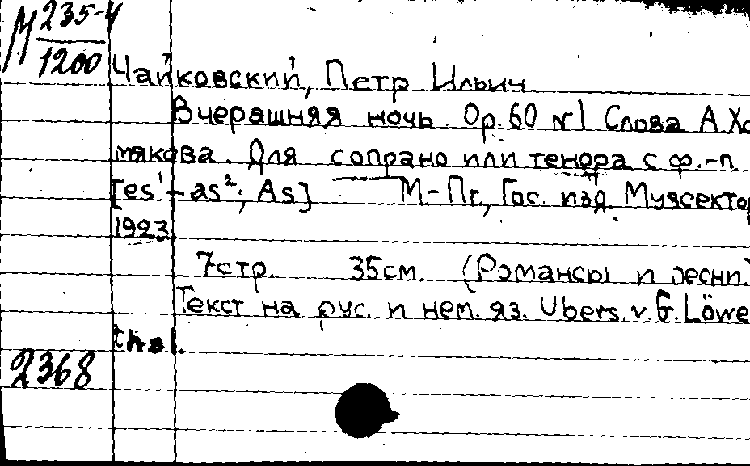 М 235-4
1200
Чайковский, Петр Ильич
Вчерашняя ночь. Ор.60 №1 Слова А.Хо
мякова. Для сопрано или тенора с ф.-п.
[es¹-as²; As] М-Пг., Гос. изд. Музсектор
1923
7стр. 35см. (Романсы и песни.
Текст на рус. и нем. яз. Ubers. v. G. Löwe
thal.
2368